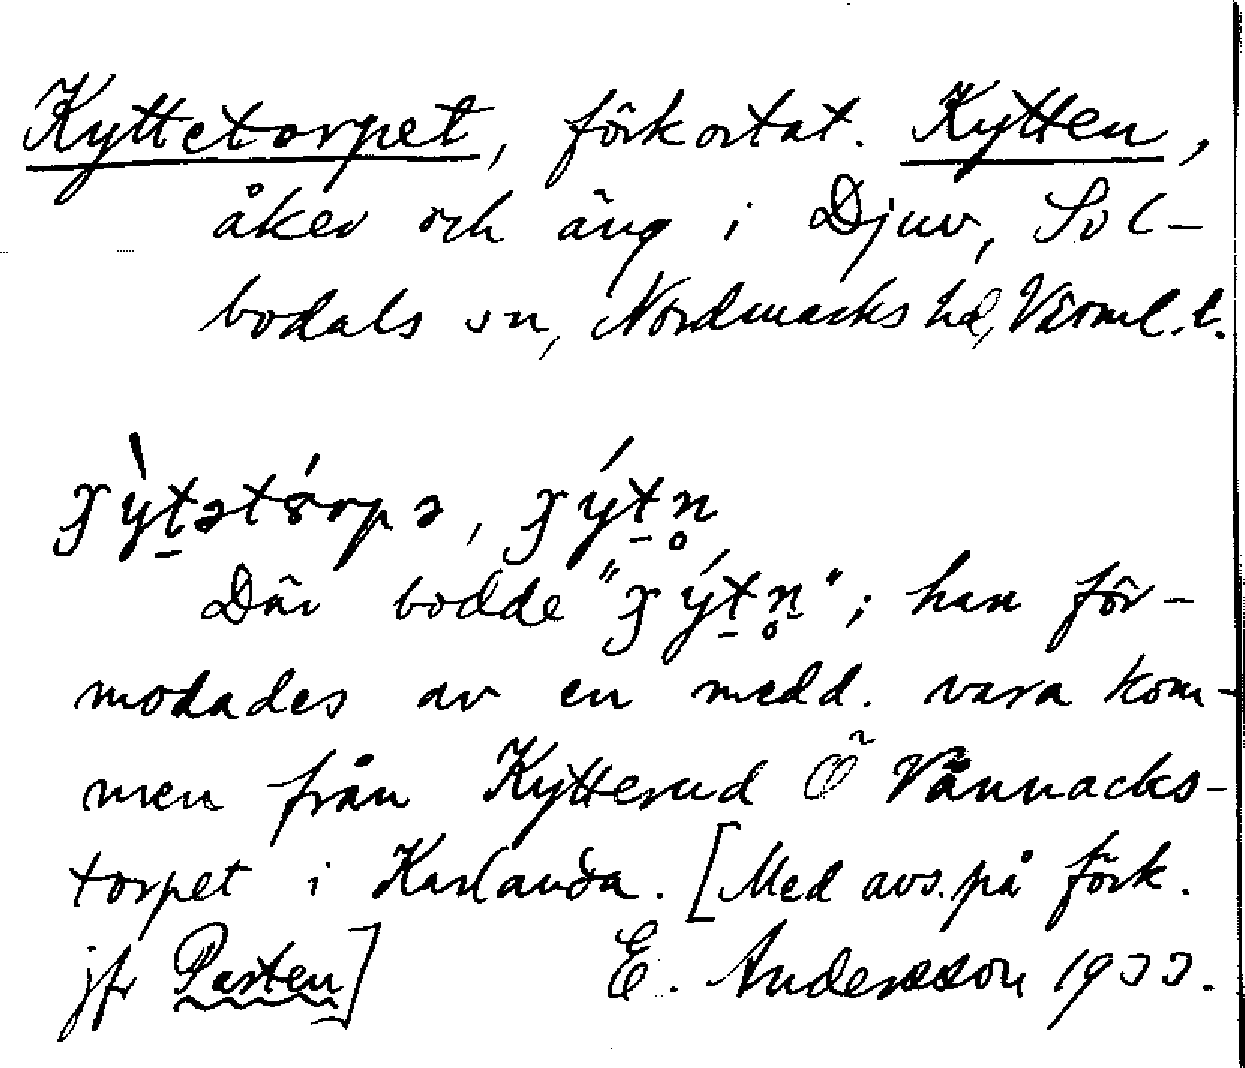 Kyttetorpet, förkortat. Kytten,
åker och äng i Djuv, Sil-
bodals sn, Nordmarks hd, Värml. l.
Där bodde " "; han för-
modades av en medd. vara kom-
men från Kytterud Ö Vännacks-
torpet i Karlanda. [Med avs. på förk.
jfr Pesten] E. Andersson 1933.